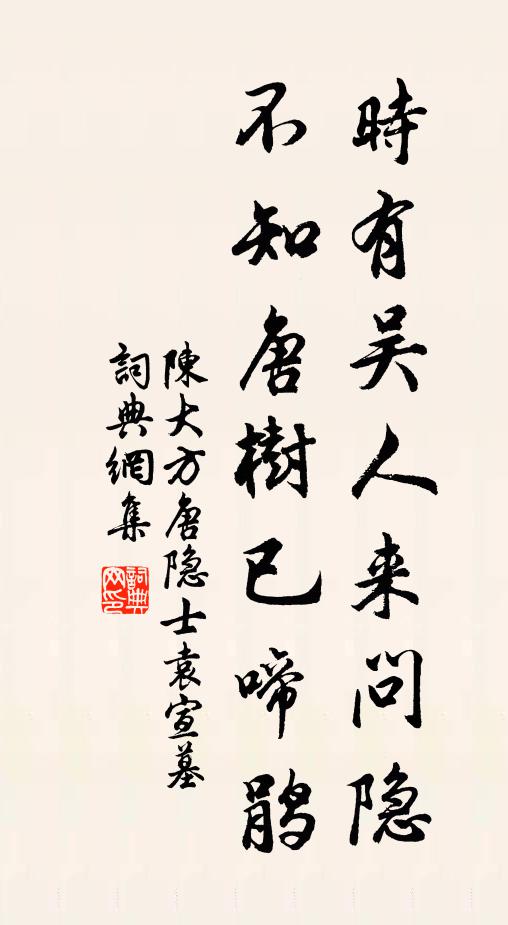 時有吴人来问隐
不知唐樹已啼鹃
陳大方唐隐士袁宣墓
詞典網集
詞典
网印